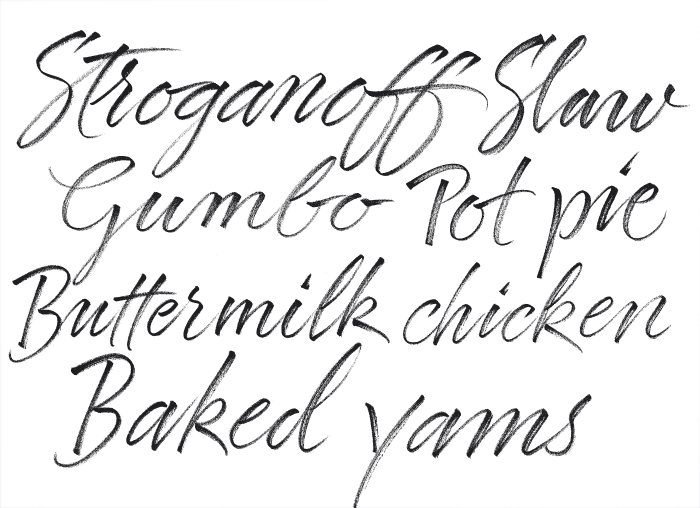 Stroganoff Slaw
Gumbo Pot pie
Buttermilk chicken
Baked yams